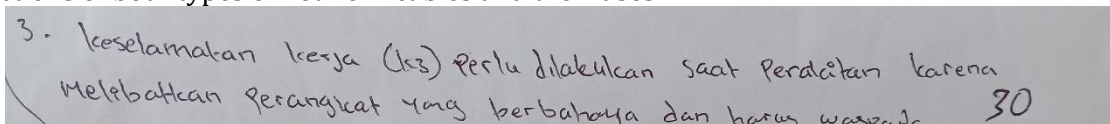 3. keselamatan kerja (k3) perlu dilakukan saat Perakitan karena
Melibatkan perangkat yang berbahaya dan harus waspada 30